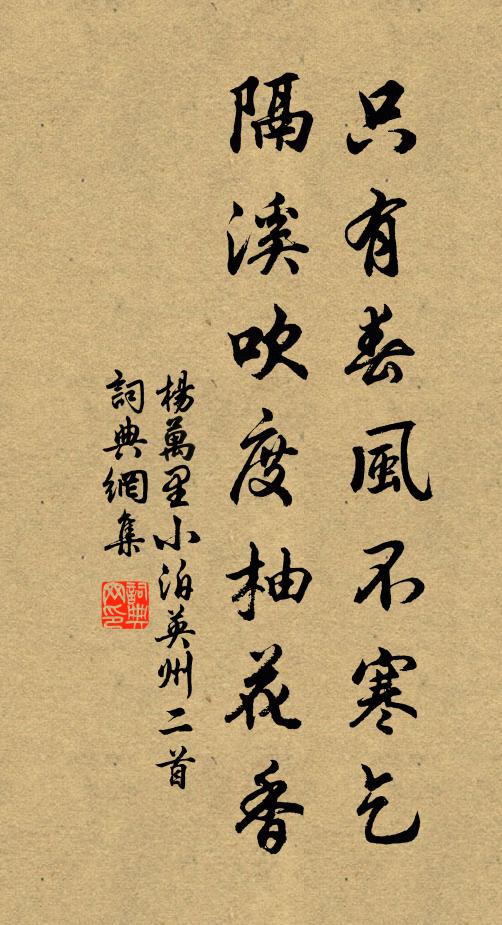 只有春風不寒乞
隔溪吹度柚花香
楊萬里小泊英州二首
詞典網集
詞典網印